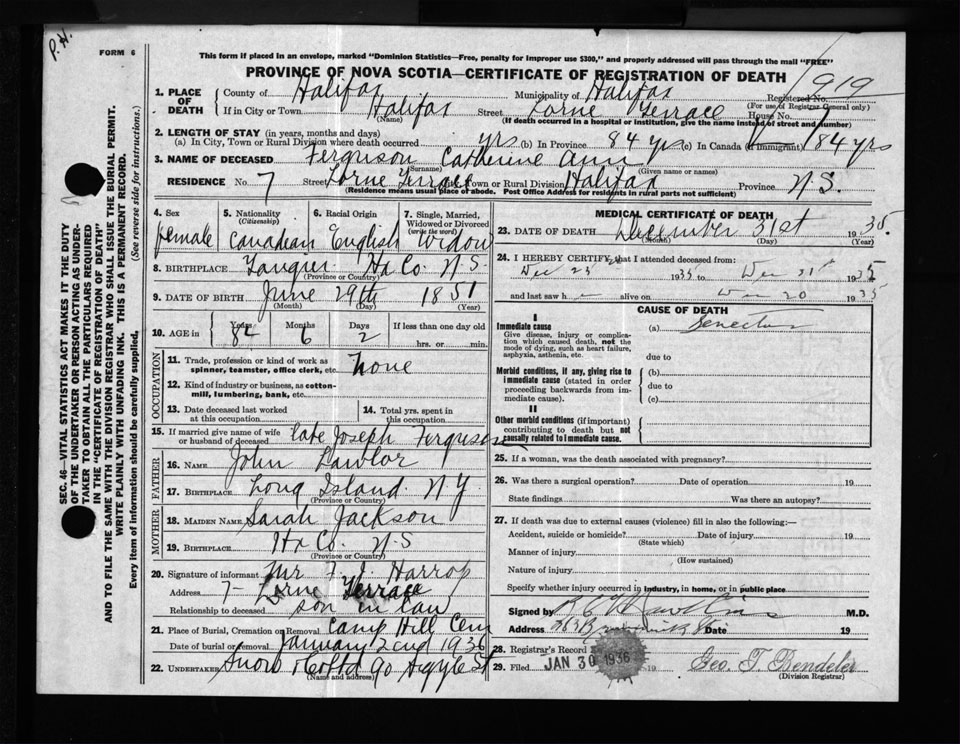 P. H.
FORM 6
This form if placed in an envelope, marked "Dominion Statistics—Free, penalty for improper use $300," and properly addressed will pass through the mail "FREE"
PROVINCE OF NOVA SCOTIA—CERTIFICATE OF REGISTRATION OF DEATH
919
1. PLACE OF DEATH County of Halifax Municipality of Halifax Registered No.
(For use of Registrar General only)
If in City or Town Halifax Street Lorne Terrace House No. 7
(Name) (If death occurred in a hospital or institution, give the name instead of street and number)
2. LENGTH OF STAY (in years, months and days)
(a) In City, Town or Rural Division where death occurred yrs (b) In Province 84 yrs (c) In Canada (if immigrant) 84 yrs
3. NAME OF DECEASED Ferguson Catherine Ann
(Surname) (Given name or names)
RESIDENCE No. 7 Street Lorne Terrace City, Town or Rural Division Halifax Province N.S.
(Residence means usual place of abode. Post Office Address for residents in rural parts not sufficient)
4. Sex female
5. Nationality (Citizenship) Canadian
6. Racial Origin English
7. Single, Married, Widowed or Divorced (write the word) Widow
8. BIRTHPLACE Tangier Hx Co. N.S.
(Province or Country)
9. DATE OF BIRTH June 29th 1851
(Month) (Day) (Year)
10. AGE in Years 84 Months 6 Days 2 If less than one day old hrs. or min.
OCCUPATION
11. Trade, profession or kind of work as spinner, teamster, office clerk, etc. none
12. Kind of industry or business, as cotton-mill, lumbering, bank, etc.
13. Date deceased last worked at this occupation
14. Total yrs. spent in this occupation
15. If married give name of wife or husband of deceased late Joseph Ferguson
FATHER
16. NAME John Lawlor
17. BIRTHPLACE Long Island. N Y
(Province or Country)
MOTHER
18. MAIDEN NAME Sarah Jackson
19. BIRTHPLACE Hx Co. N.S
(Province or Country)
20. Signature of informant Mr F. J. Harrop
Address 7 - Lorne Terrace
Relationship to deceased son in law
21. Place of Burial, Cremation or Removal Camp Hill Cem
Date of burial or removal January 2nd 1936
22. UNDERTAKER Snow & Co Ltd 90 Argyle St
(Name and address)
MEDICAL CERTIFICATE OF DEATH
23. DATE OF DEATH December 31st 1935.
(Month) (Day)
24. I HEREBY CERTIFY that I attended deceased from:
Dec 23 1935 to Dec 31st 1935
and last saw h alive on Dec 20 1935
CAUSE OF DEATH
I
Immediate cause
Give disease, injury or complication which caused death, not the mode of dying, such as heart failure, asphyxia, asthenia, etc.
(a)
due to
Morbid conditions, if any, giving rise to immediate cause (stated in order proceeding backwards from immediate cause).
(b)
due to
(c)
II
Other morbid conditions (if important) contributing to death but not causally related to immediate cause.
25. If a woman, was the death associated with pregnancy?
26. Was there a surgical operation? Date of operation 19
State findings Was there an autopsy?
27. If death was due to external causes (violence) fill in also the following:—
Accident, suicide or homicide? Date of injury 19
(State which)
Manner of injury
(How sustained)
Nature of injury
Specify whether injury occurred in industry, in home, or in public place
Signed by M.D.
Address Date 19
28. Registrar's Record
29. Filed JAN 30 1936 19 Geo. T. Bendeler
(Division Registrar)
SEC. 46—VITAL STATISTICS ACT MAKES IT THE DUTY
OF THE UNDERTAKER OR PERSON ACTING AS UNDER-
TAKER TO OBTAIN ALL THE PARTICULARS REQUIRED
IN THE "CERTIFICATE OF REGISTRATION OF DEATH"
AND TO FILE THE SAME WITH THE DIVISION REGISTRAR WHO SHALL ISSUE THE BURIAL PERMIT.
WRITE PLAINLY WITH UNFADING INK. THIS IS A PERMANENT RECORD.
Every item of information should be carefully supplied. (See reverse side for instructions.)